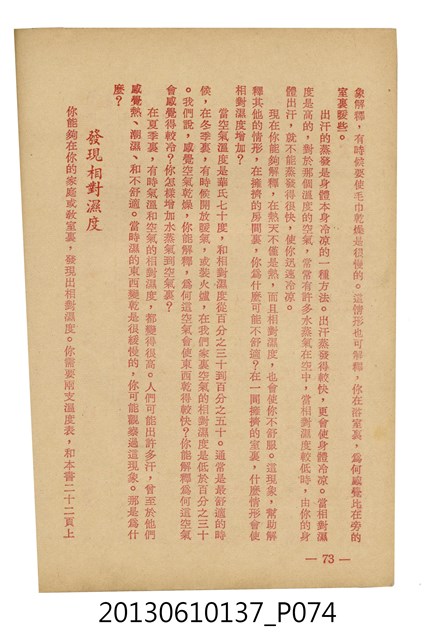 象解釋，有時候要使毛巾乾燥是很慢的。這情形也可解釋，你在浴室裏，爲何感覺比在旁的
室裏暖些。
出汗的蒸發是身體本身冷凉的一種方法。出汗蒸發得較快，更會使身體冷凉。當相對濕
度是高的，對於那個溫度的空氣，常常有許多水蒸氣在空中，當相對濕度較低時，由你的身
體出汗，就不能蒸發得很快，使你迅速冷凉。
現在你能夠解釋，在熱天不僅是熱，而且相對濕度，也會使你不舒服。這現象，幫助解
釋其他的情形，在擁擠的房間裏，你爲什麼可能不舒適？在一間擁擠的室裏，什麼情形會使
相對濕度增加？
當空氣溫度是華氏七十度，和相對濕度從百分之三十到百分之五十。通常是最舒適的時
候，在冬季裏，有時候開放暖氣，或裝火爐，在我們家裏空氣的相對濕度是低於百分之三十
。我們說，感覺空氣乾燥，你能解釋，爲何這空氣會使東西乾得較快？你能解釋爲何這空氣
會感覺得較冷？你怎樣增加水蒸氣到空氣裏？
在夏季裏，有時氣溫和空氣的相對濕度，都變得很高。人們可能出許多汗，曾至於他們
感覺熱、潮濕、和不舒適。當時濕的東西變乾是很緩慢的，你可能觀察過這現象。那是爲什
麼？
發現相對濕度
你能夠在你的家庭或教室裏，發現出相對濕度。你需要兩支溫度表，和本書二十二頁上
— 73 —
20130610137_P074